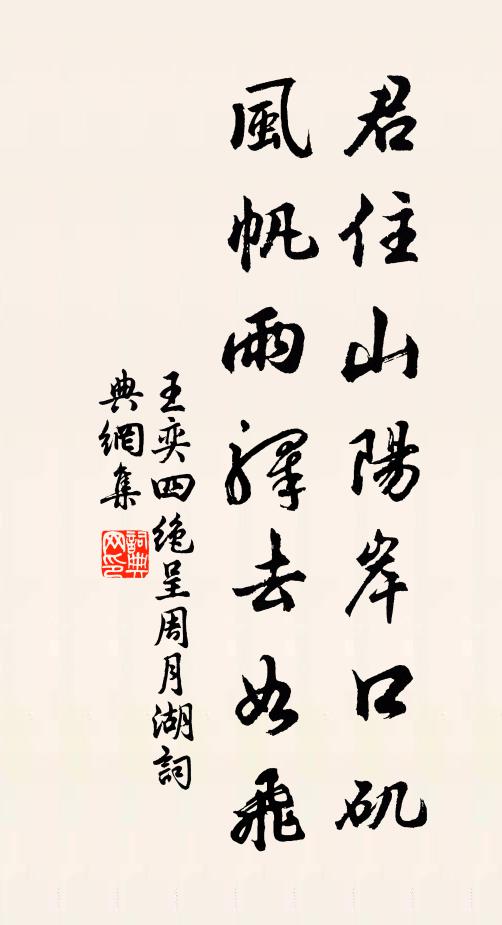 君住山陽岸口矶
風帆雨驛去如飛
王奕四絶呈周月湖詞
典網集
詞典网印